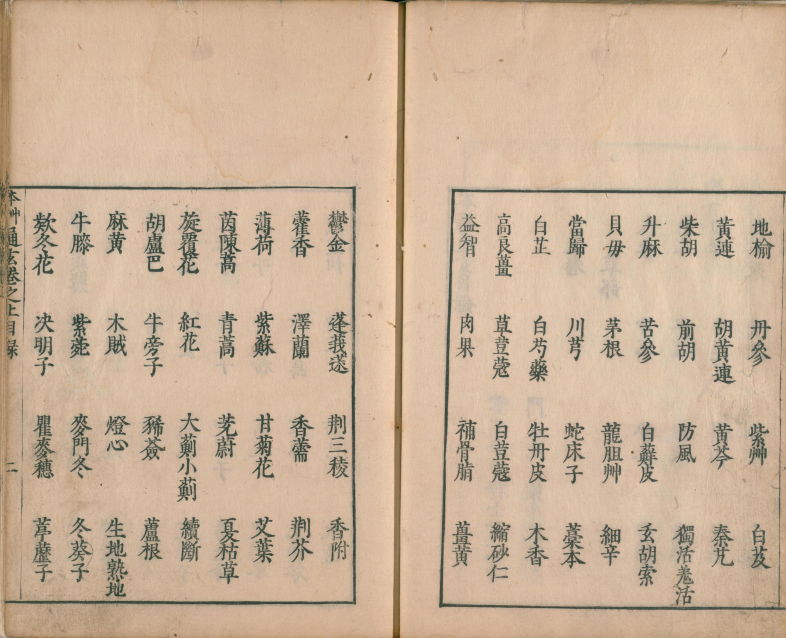 地榆 丹參 紫艸 白芨
黃連 胡黃連 黃芩 秦艽
柴胡 前胡 防風 獨活羗活
升麻 苦參 白蘚皮 玄胡索
貝毋 茅根 龍胆艸 細辛
當歸 川芎 蛇床子 藁本
白芷 白芍藥 牡丹皮 木香
高良薑 草荳蔻 白荳蔻 縮砂仁
益智 肉果 補骨脂 薑黃
鬱金 蓬莪蒁 荆三稜 香附
藿香 澤蘭 香薷 荆芥
薄荷 紫蘇 甘菊花 艾葉
茵陳蒿 青蒿 茺蔚子 夏枯草
旋覆花 紅花 大薊小薊 續斷
胡盧巴 牛旁子 豨薟 蘆根
麻黃 木賊 燈心 生地熟地
牛膝 紫菀 麥門冬 冬葵子
欵冬花 决明子 瞿麥穗 葶藶子
本艸通玄卷之上目錄 二